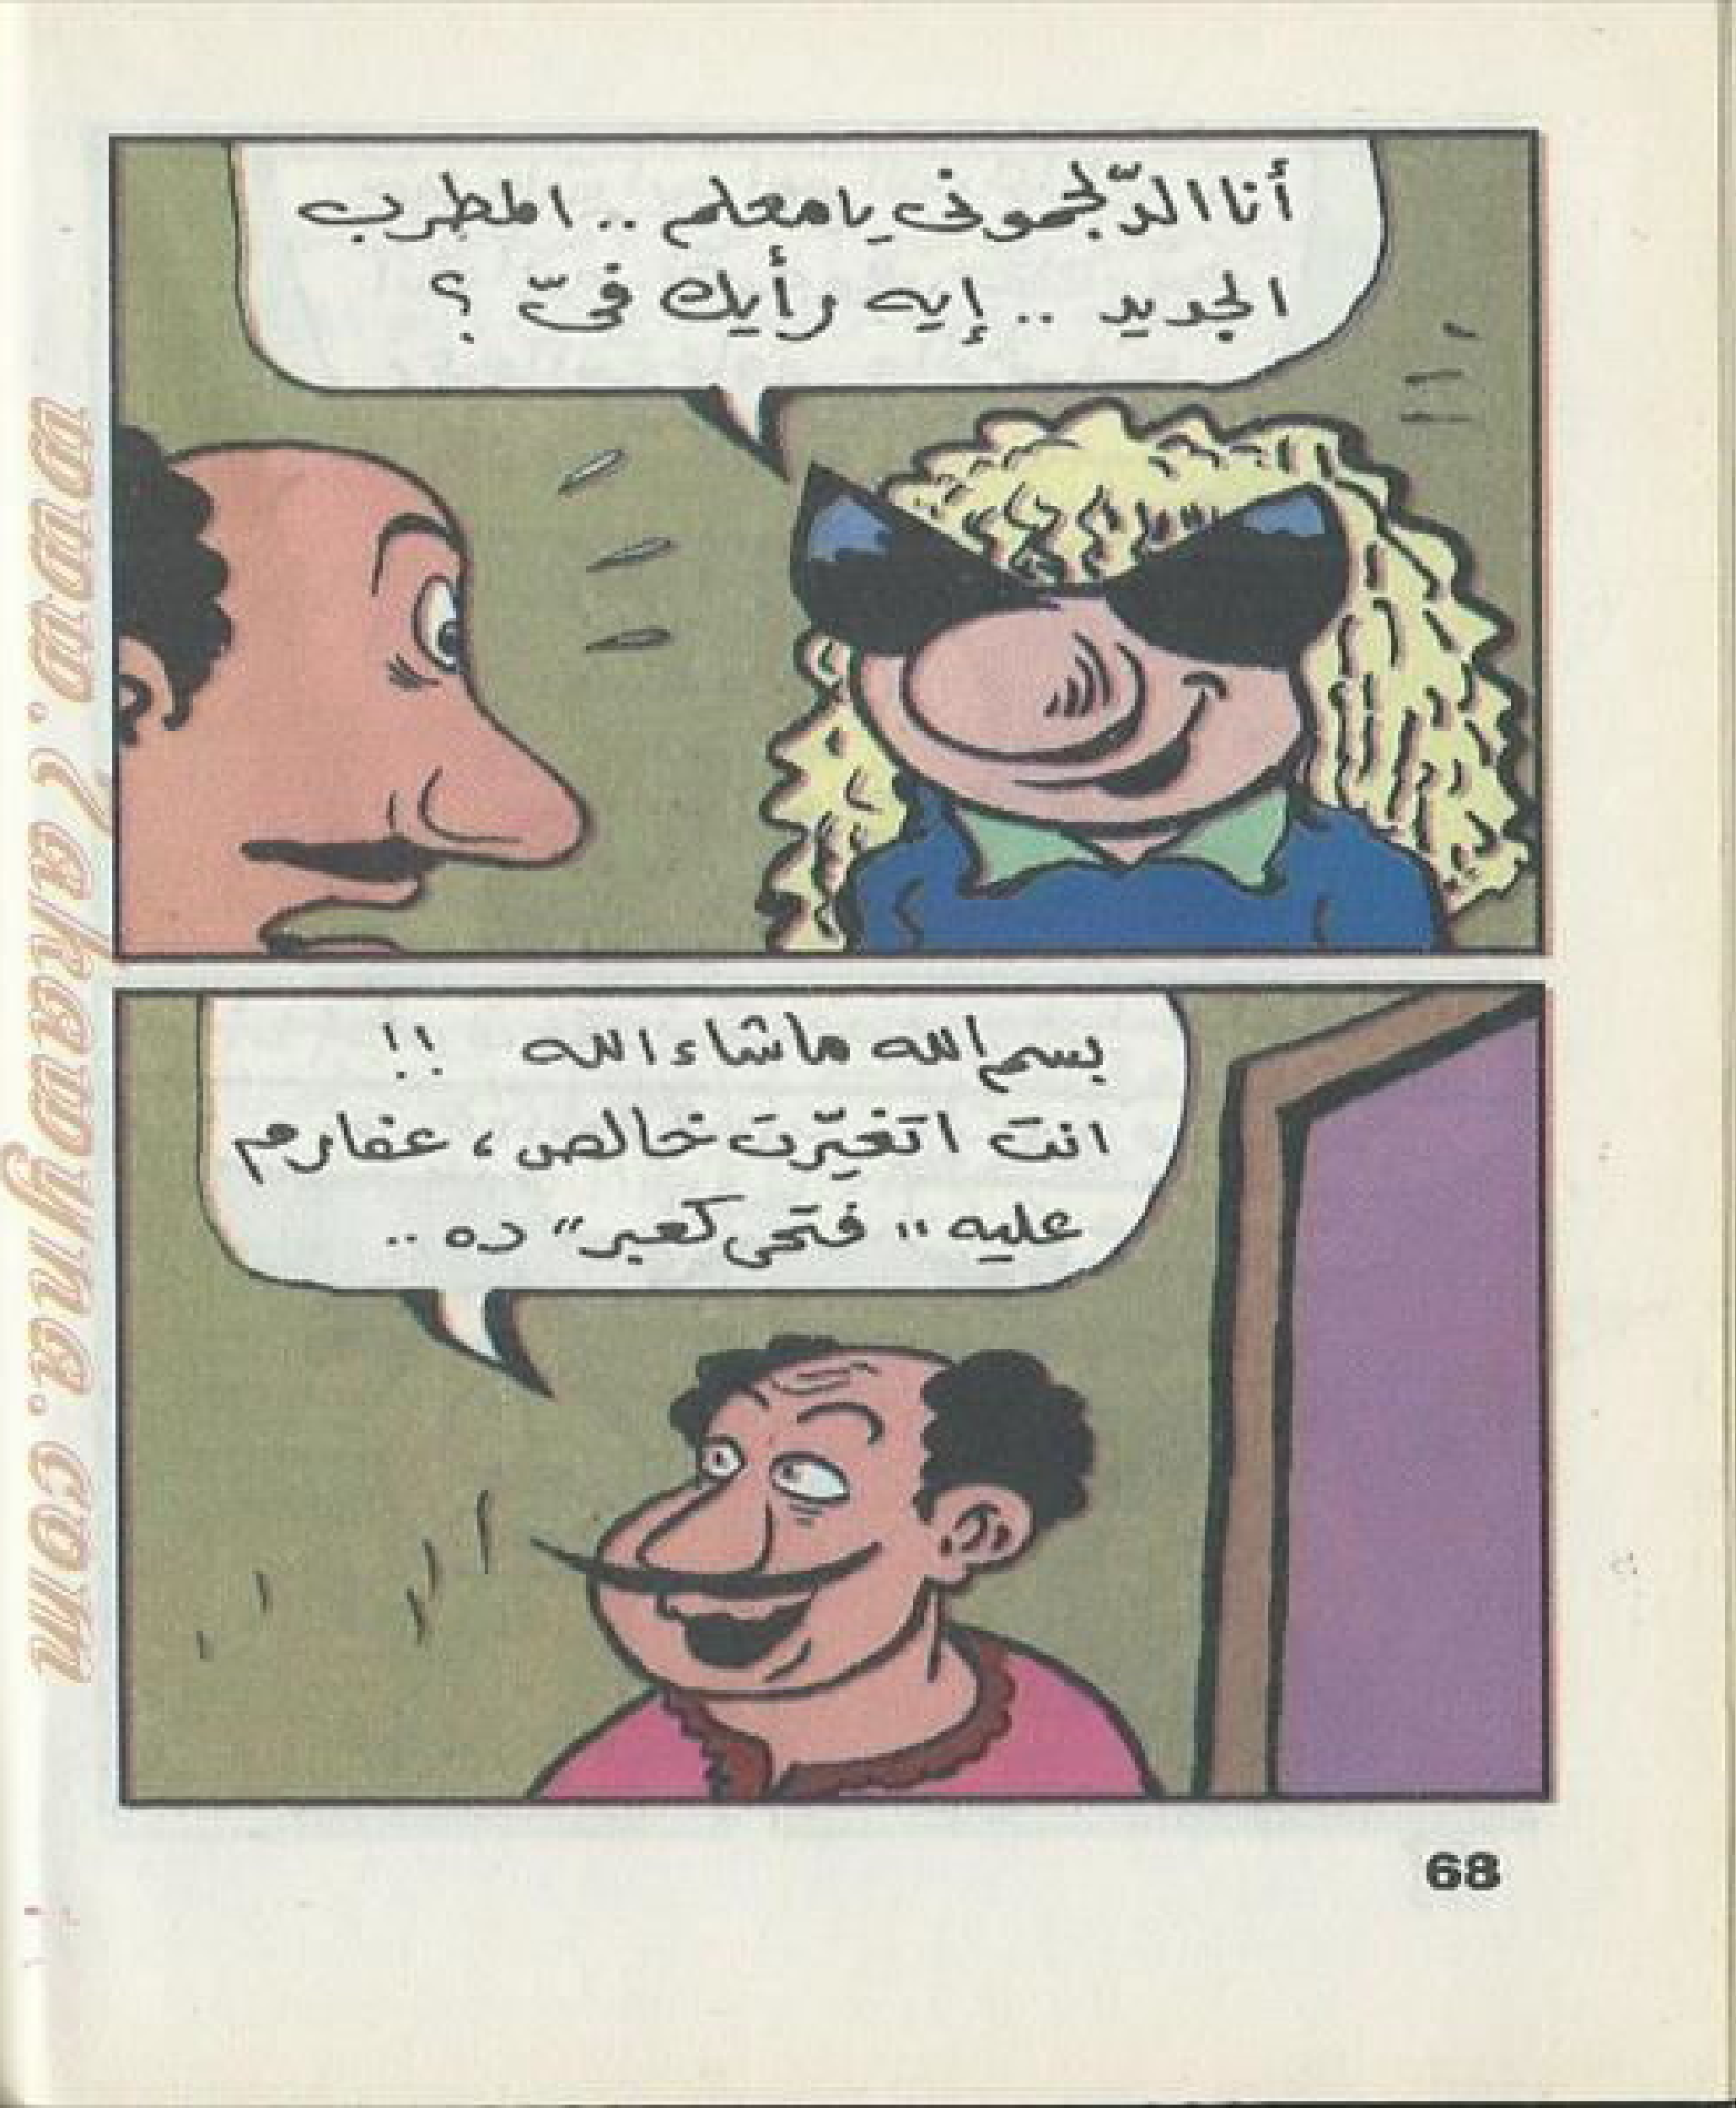 أنا الدّلجمونى يا معلم .. المطرب
الجديد .. إيه رأيك فىّ ؟
بسم الله ما شاء الله !!
انت اتغيّرت خالص ، عفارم
عليه " فتحى كعبر " ده ..
68
www.7akawyna.com